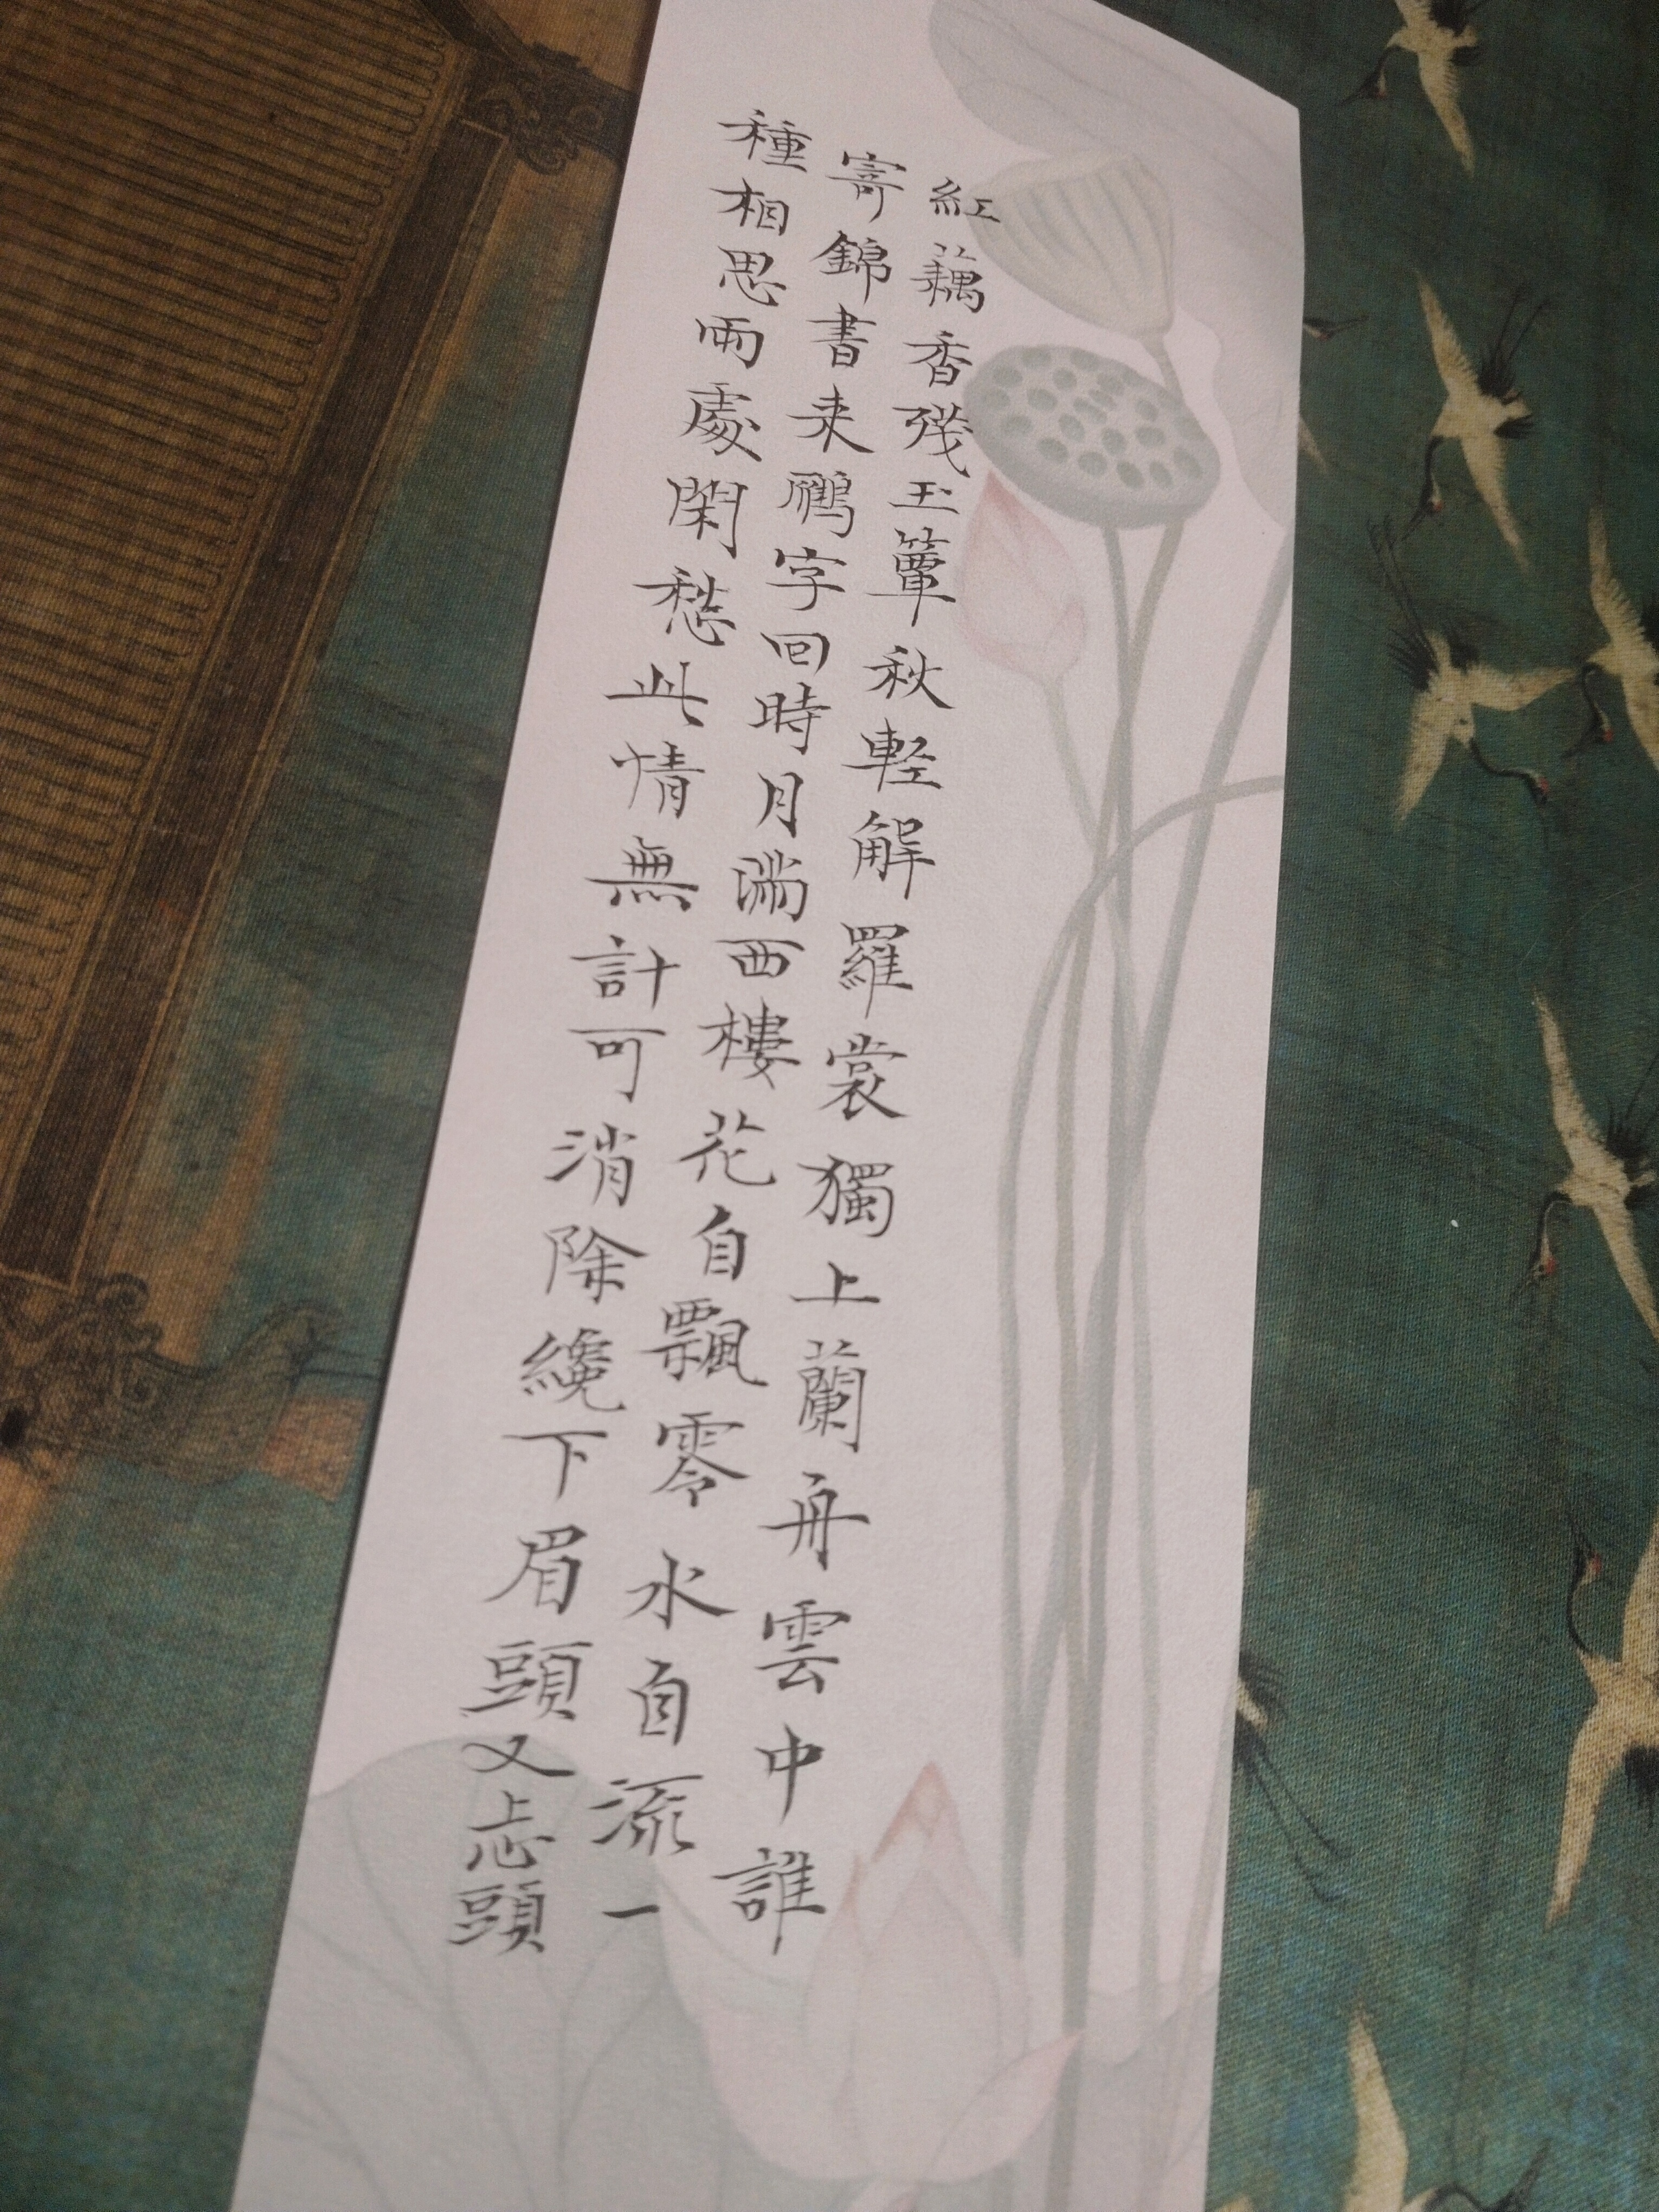 紅藕香残玉簟秋軽解羅裳獨上蘭舟雲中誰
寄錦書来鴈字回時月滿西樓花自飄零水自流一
種相思兩處閑愁此情無計可消除纔下眉頭又上心頭